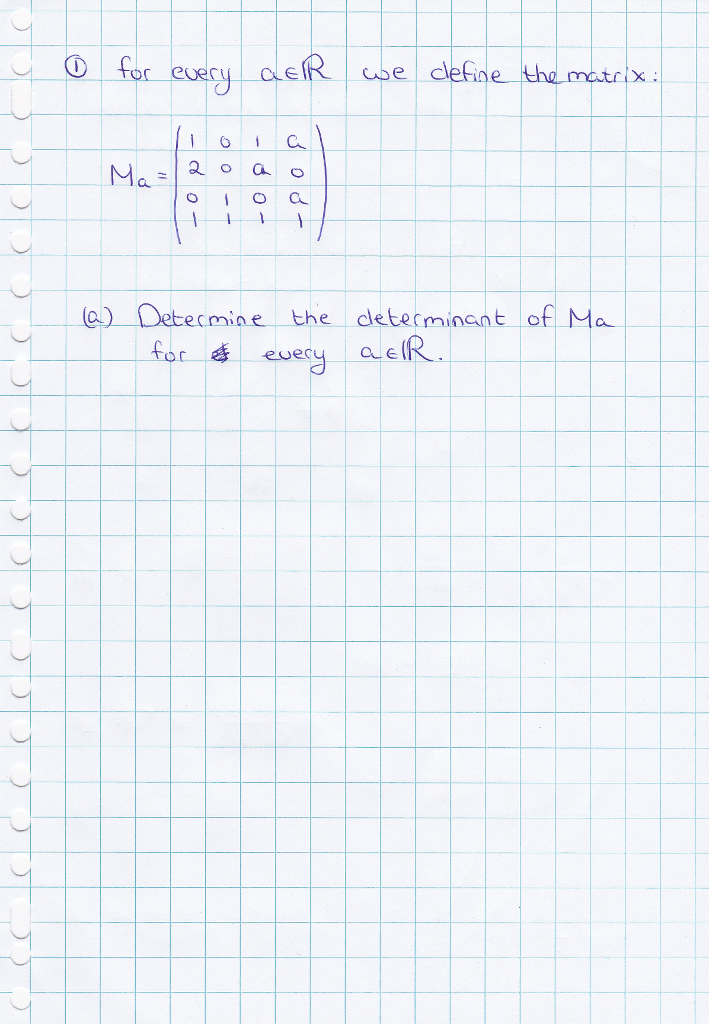 ① for every a∈ℝ we define the matrix:
Ma = ( 1 0 1 a
2 0 a 0
0 1 0 a
1 1 1 1 )
(a) Determine the determinant of Ma
for every a∈ℝ.